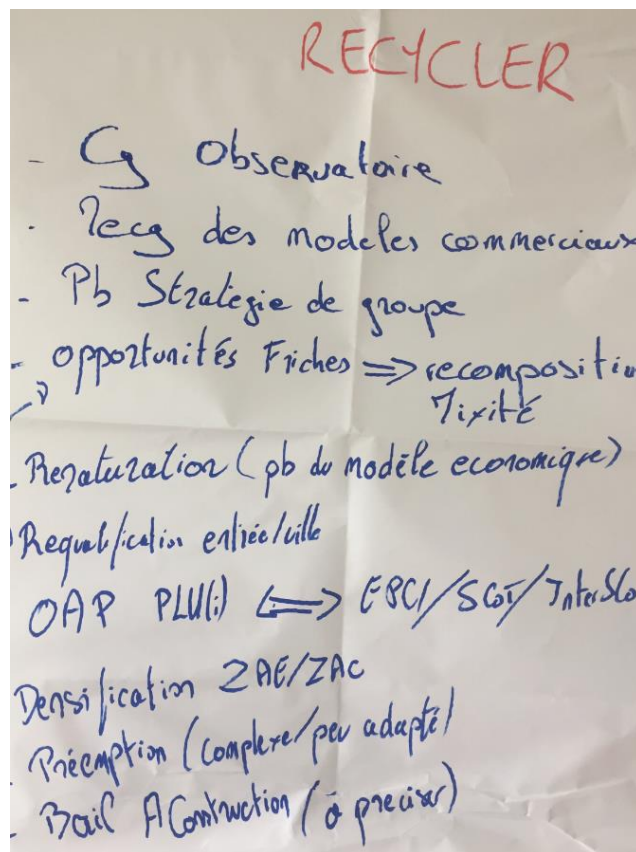 RECYCLER
- Cg Observatoire
- Recy des modeles commerciaux
- Pb Stratégie de groupe
- Opportunités Friches => recompositio
Mixité
- Renaturation (pb du modèle economique)
Requalification entrée/ville
OAP PLU(i) <=> EPCI/SCOT/InterSco
Densification ZAE/ZAC
- Préemption (complexe/peu adapté)
- Bail A Construction (à preciser)